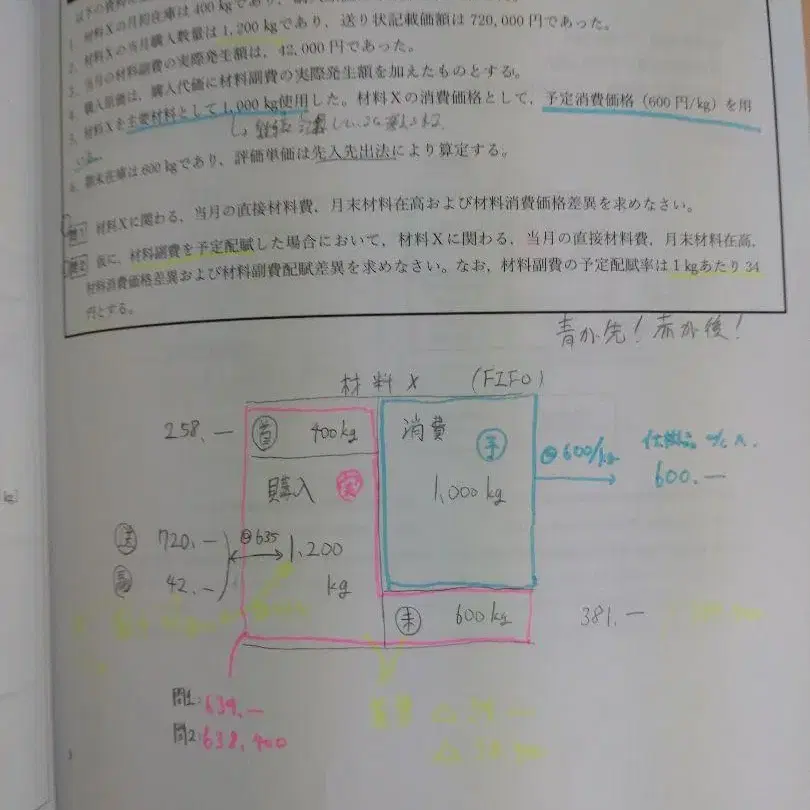 1. 材料Xの月初在庫は400kgであり、
2. 材料Xの当月購入数量は1,200kgであり、送り状記載価額は720,000円であった。
3. 当月の材料副費の実際発生額は、42,000円であった。
4. 購入原価は、購入代価に材料副費の実際発生額を加えたものとする。
5. 材料Xを主要材料として1,000kg使用した。材料Xの消費価格として、予定消費価格(600円/kg)を用
6. 期末在庫は600kgであり、評価単価は先入先出法により算定する。
問1 材料Xに関わる、当月の直接材料費、月末材料在高および材料消費価格差異を求めなさい。
問2 仮に、材料副費を予定配賦した場合において、材料Xに関わる、当月の直接材料費、月末材料在高、
材料消費価格差異および材料副費配賦差異を求めなさい。なお、材料副費の予定配賦率は1kgあたり34
円とする。
青が先!赤が後!
材料X (FIFO)
258.— 400kg 消費 予 @600/kg 仕掛品
600.—
購入 実 1,000kg
720.— @635 1,200
42.— kg
末 600kg 381.—
問1: 639.—
問2: 638,400
kg]